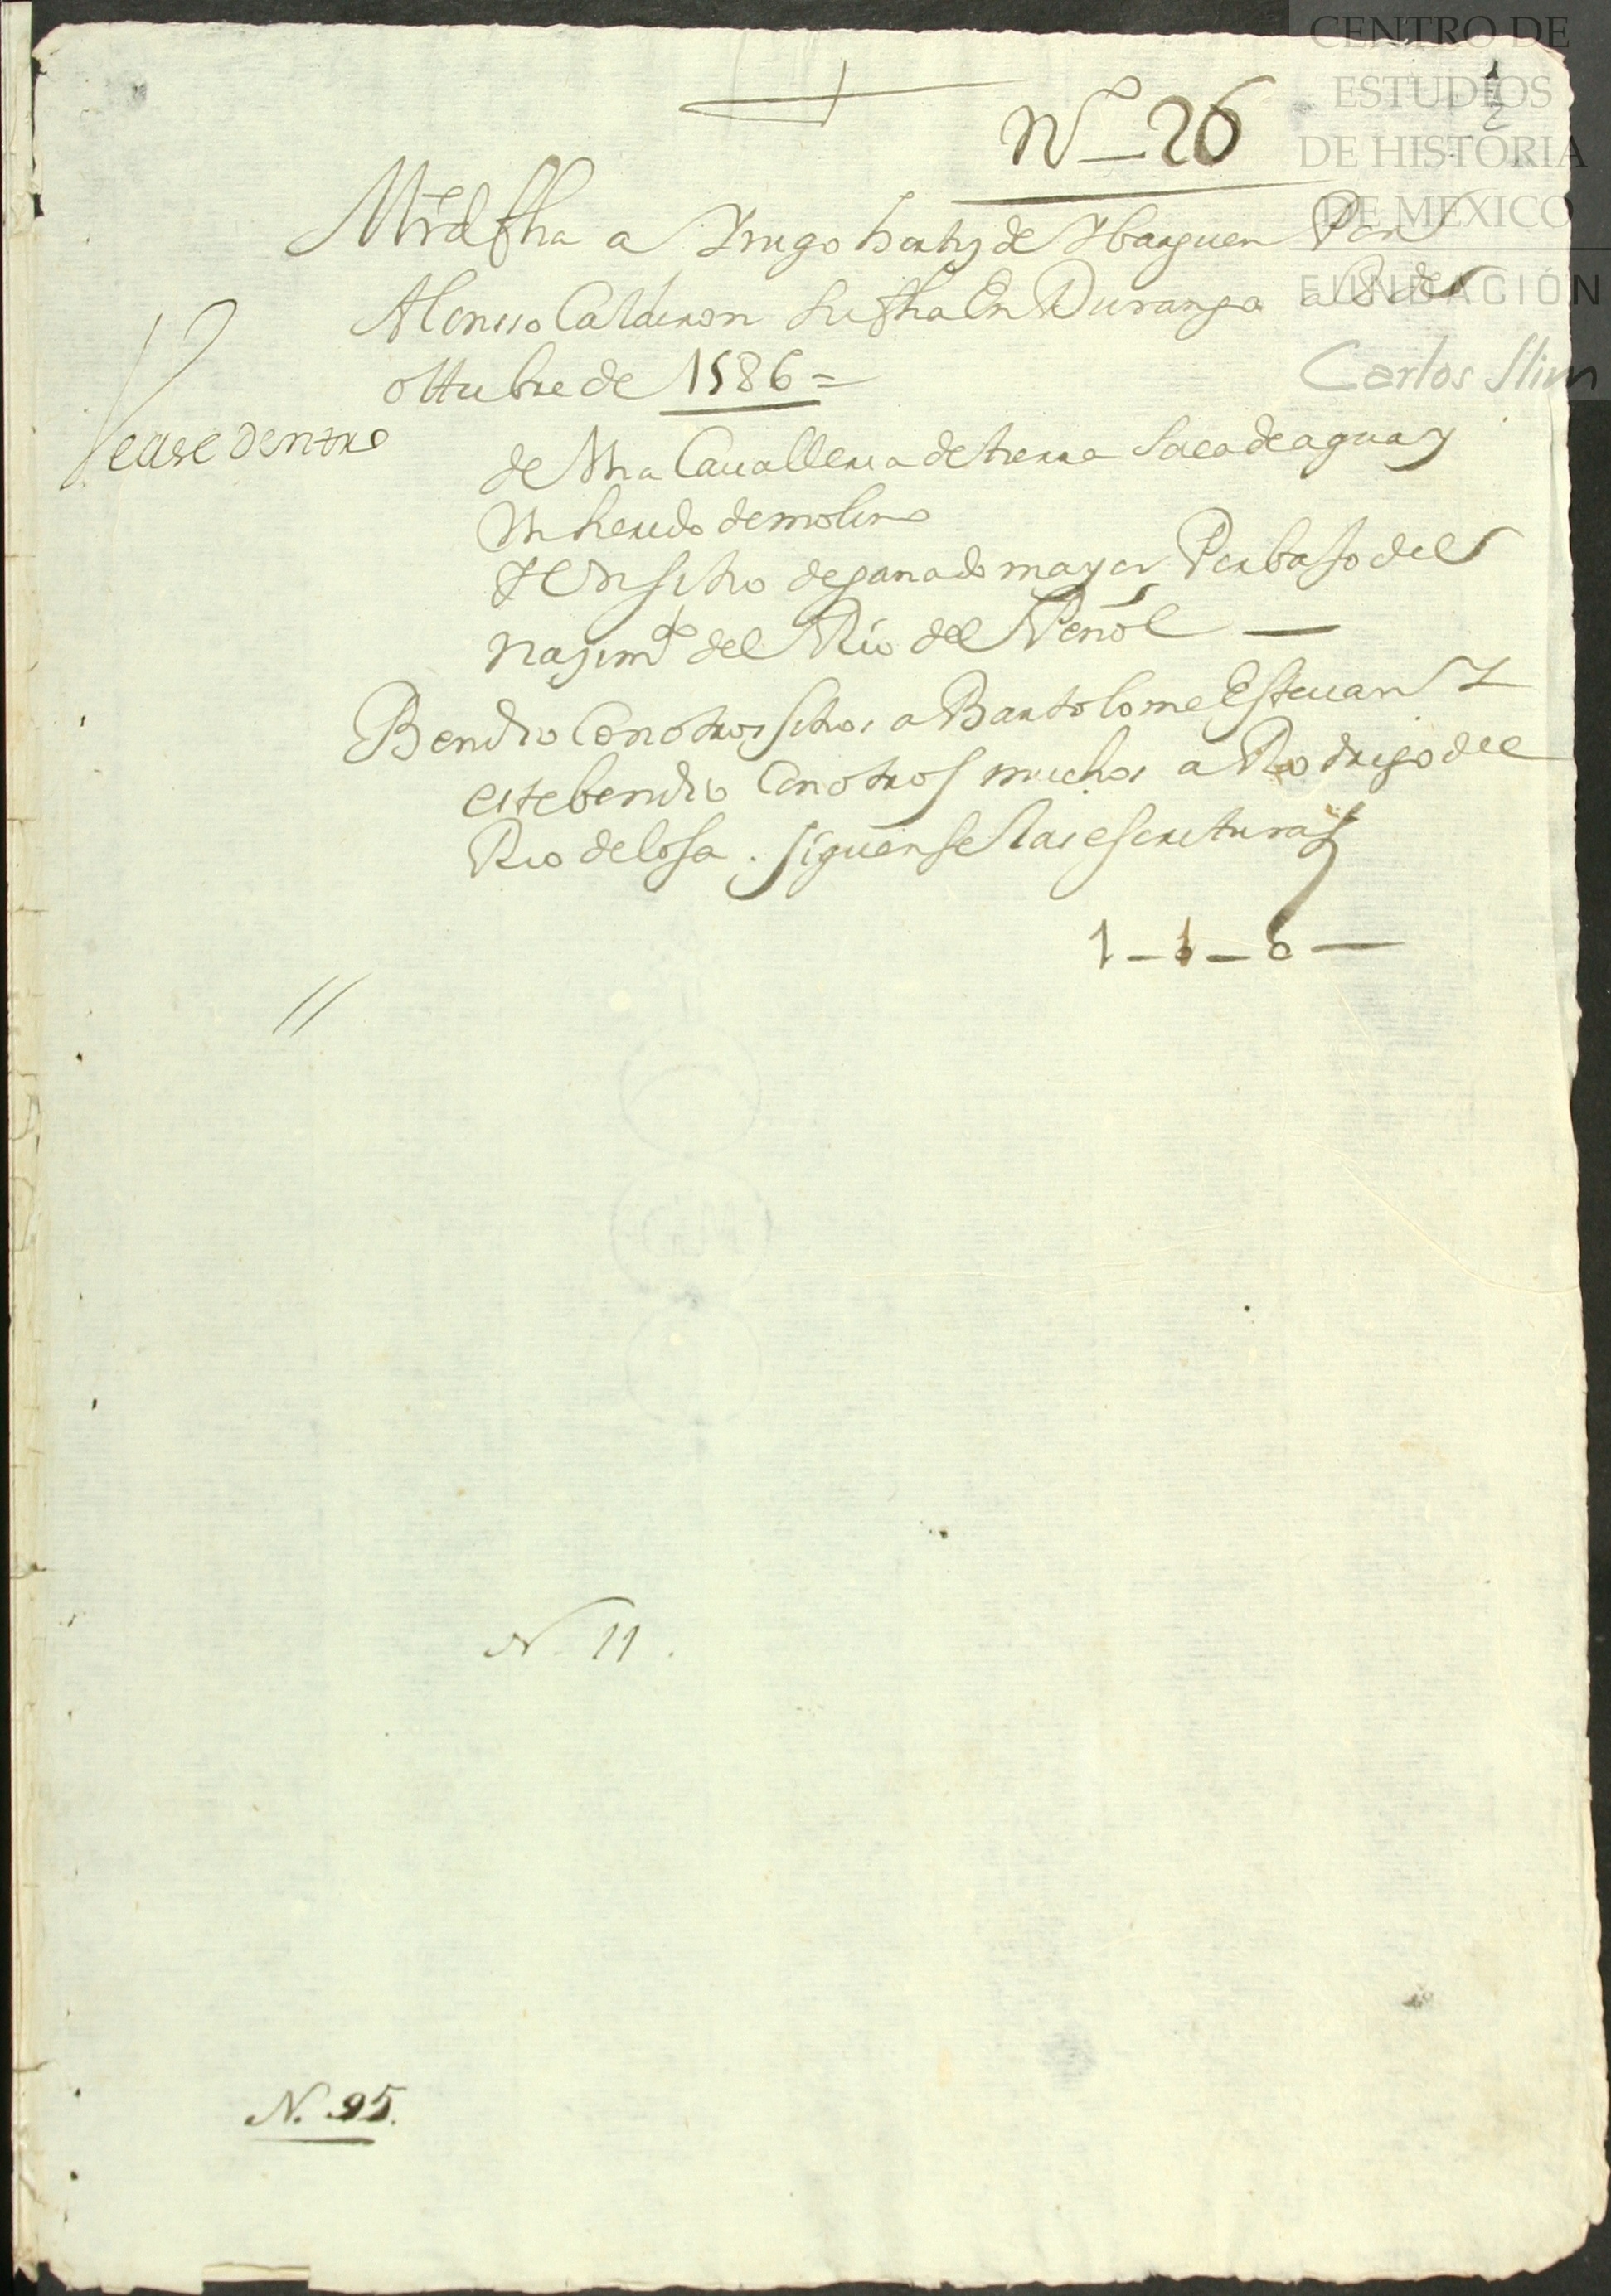 CENTRO DE
ESTUDIOS
DE HISTORIA
DE MEXICO
FUNDACIÓN
Carlos Slim
Nº - 26
Mrd fha a Ynigo hortiz de Ybarguen Por
Alonsso Calderon Su fha En Durango a 8 de
ottubre de 1586 =
Vease dentro
de Vna Caualleria de tierra Saca de agua y
Vn herido de molino
Y Vn sitio de ganado mayor Por bajo del
nasimto del Rio del Peñol —
Bendio Con otros sitios a Bartolome Esteuan Y
este bendio Con otros muchos a Rodrigo del
Rio de losa. siguense las escrituras
1 - 1 - 6 —
//
N. 11.
N. 95.